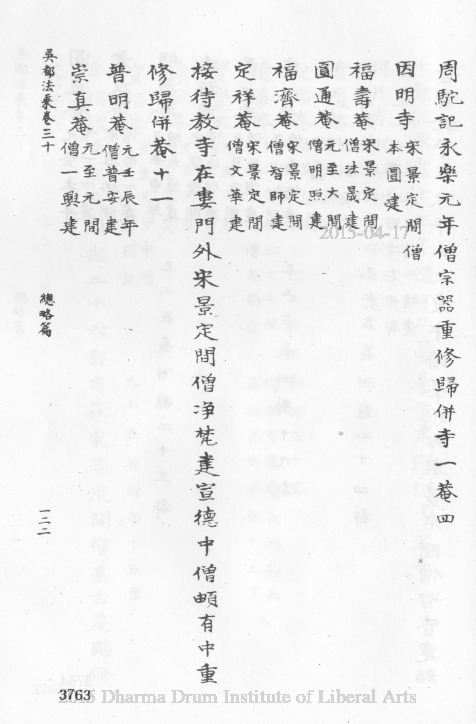 周駝記永樂元年僧宗器重修歸併寺一菴四
因明寺宋景定間僧
本圓建
福壽菴宋景定間
僧法晟建
圓通菴元至大間
僧明照建
福濟菴宋景定間
僧智師建
定祥菴宋景定間
僧文華建
接待教寺在婁門外宋景定間僧淨梵建宣德中僧䪺有中重
修歸併菴十一
普明菴元壬辰年
僧普安建
崇真菴元至元間
僧一興建
吳都法乘卷三十
總略篇
一二二
3763
2013-04-17
2013 Dharma Drum Institute of Liberal Arts